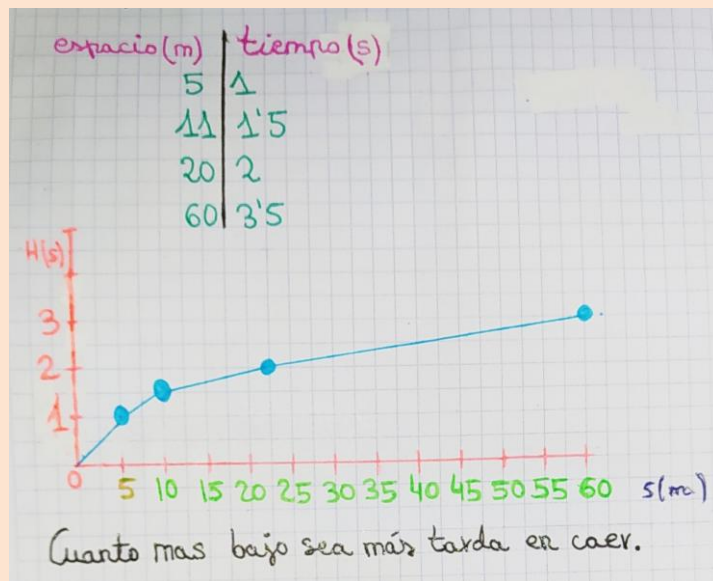 espacio(m) tiempo(s)
5 1
11 1'5
20 2
60 3'5
H(s)
3
2
1
0 5 10 15 20 25 30 35 40 45 50 55 60 s(m)
Cuanto mas bajo sea más tarda en caer.